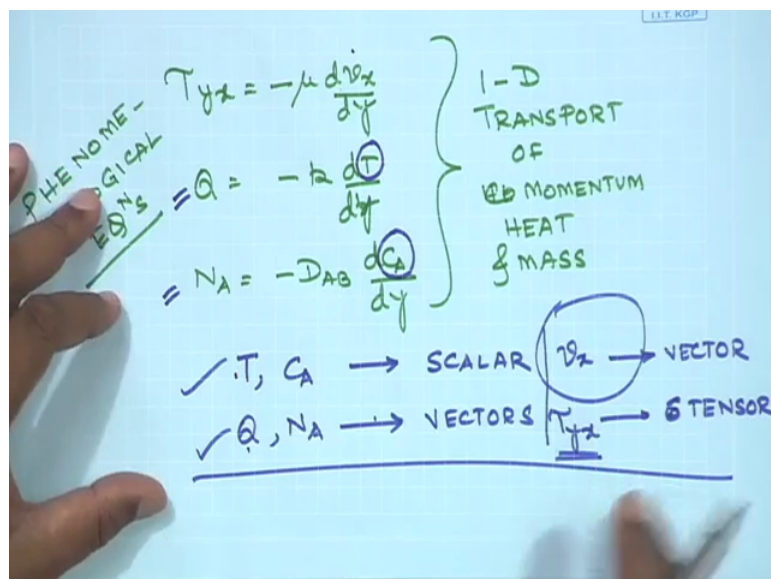 I.I.T. KGP
PHENOME-
GICAL
EQNS
τyx = -μ dvx/dy
= Q = -k dT/dy
= NA = -DAB dCA/dy
1-D
TRANSPORT
OF
MOMENTUM
HEAT
& MASS
✓ T, CA → SCALAR
vx → VECTOR
✓ Q, NA → VECTORS
τyx → 6 TENSOR